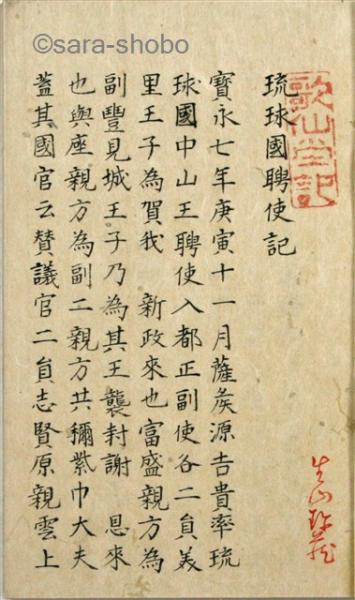 ©sara-shobo
琉球國聘使記
寶永七年庚寅十一月薩矦源吉貴率琉
球國中山王聘使入都正副使各二員美
里王子為賀我 新政來也富盛親方為
副豐見城王子乃為其王襲封謝 恩來
也與座親方為副二親方共稱紫巾大夫
蓋其國官云賛議官二員志賢原親雲上